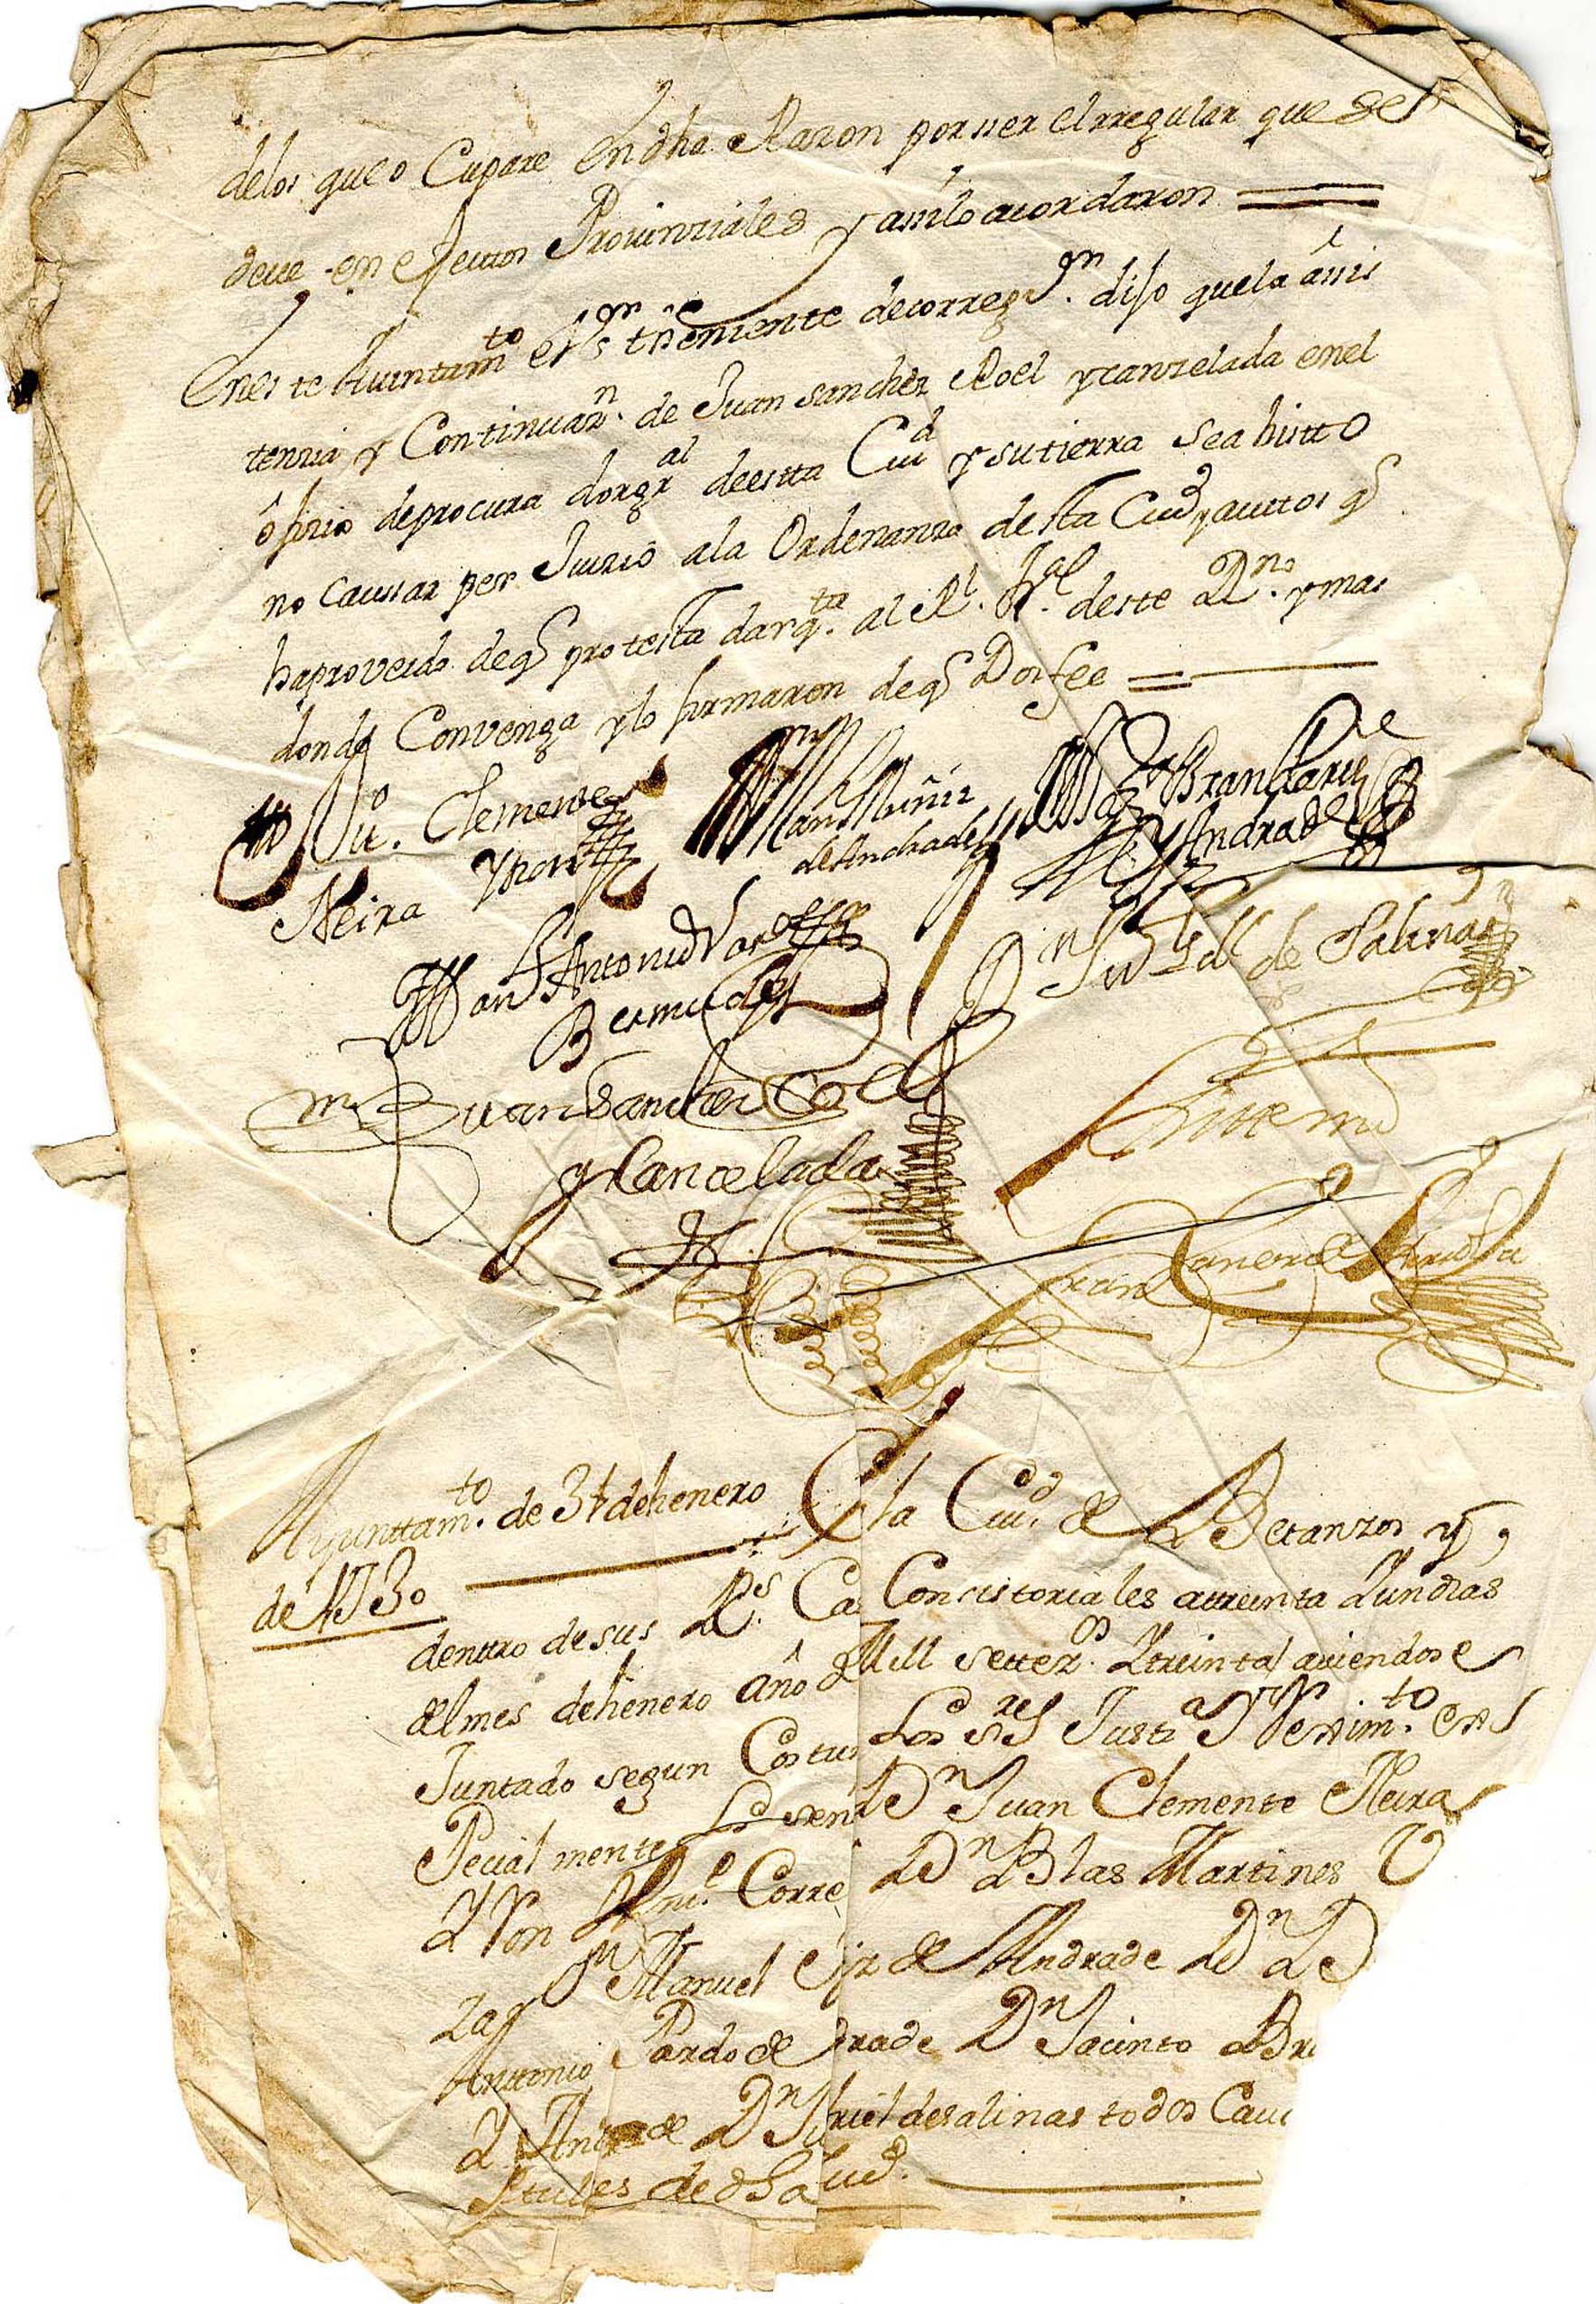 delos que o Cupare En dha Razon por ser el rregular que se
deve en efeuttos Provinziales y assilo acordaron
Eneste Auintamto el Sr theniente decorregor dijo quela assis
tenzia y Continuazn de Juan sanchez Roel ycanzelada enel
ofizio deprocura dorgral deestta Ciud ysutierra sea bistto
no Caussar per Juizio ala Ordenanza desta Ciud yauttos q
haproveido deq protesta darqta al Rl Acl deste Rno ymas
donde Convenga ylo firmaron deq Doi fee
Ju. Clemente
Neira Ypon
Man Muñiz
deAndrade
Brandariz
YAndrade
Antonio
Bermudez
Dn de Salinas
Juan Sanchez Roel
y Cancelada
Antte mi
Ayunttamto. de 31 dehenero
de 1730
En la Ciud. de Betanzos y
dentro desus Rs. Ca Consistoriales attreinta Yundias
delmes dehenero año de Mill settezos. Ytreinta aviendose
Juntado segun Costum Los sres Justa Y Reximto. en
Pecial mente Los sen Dn Juan Clemente Neira
Y Pon Thnte. Corre Dn Blas Martines V
Za Dn Manuel de Andrade Dn D
Anttonio Pardo de drade Dn Jacinto Br
Y Andrade Dn briel desalinas todos Cavi
ttulares de dha Ciud.